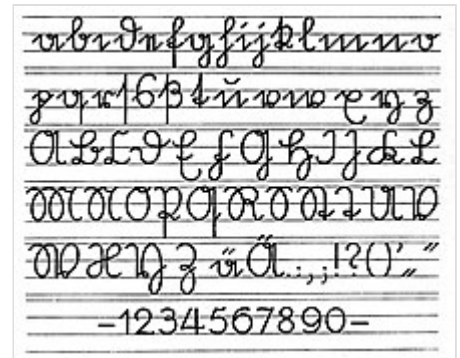 a b c d e f g h i j k l m n o
p q r ſ s ß t u v w x y z
A B C D E F G H I J K L
M N O P Q R S T U V
W X Y Z ä Ä . : , ; ! ? ( ) ’ „ “
-1234567890-